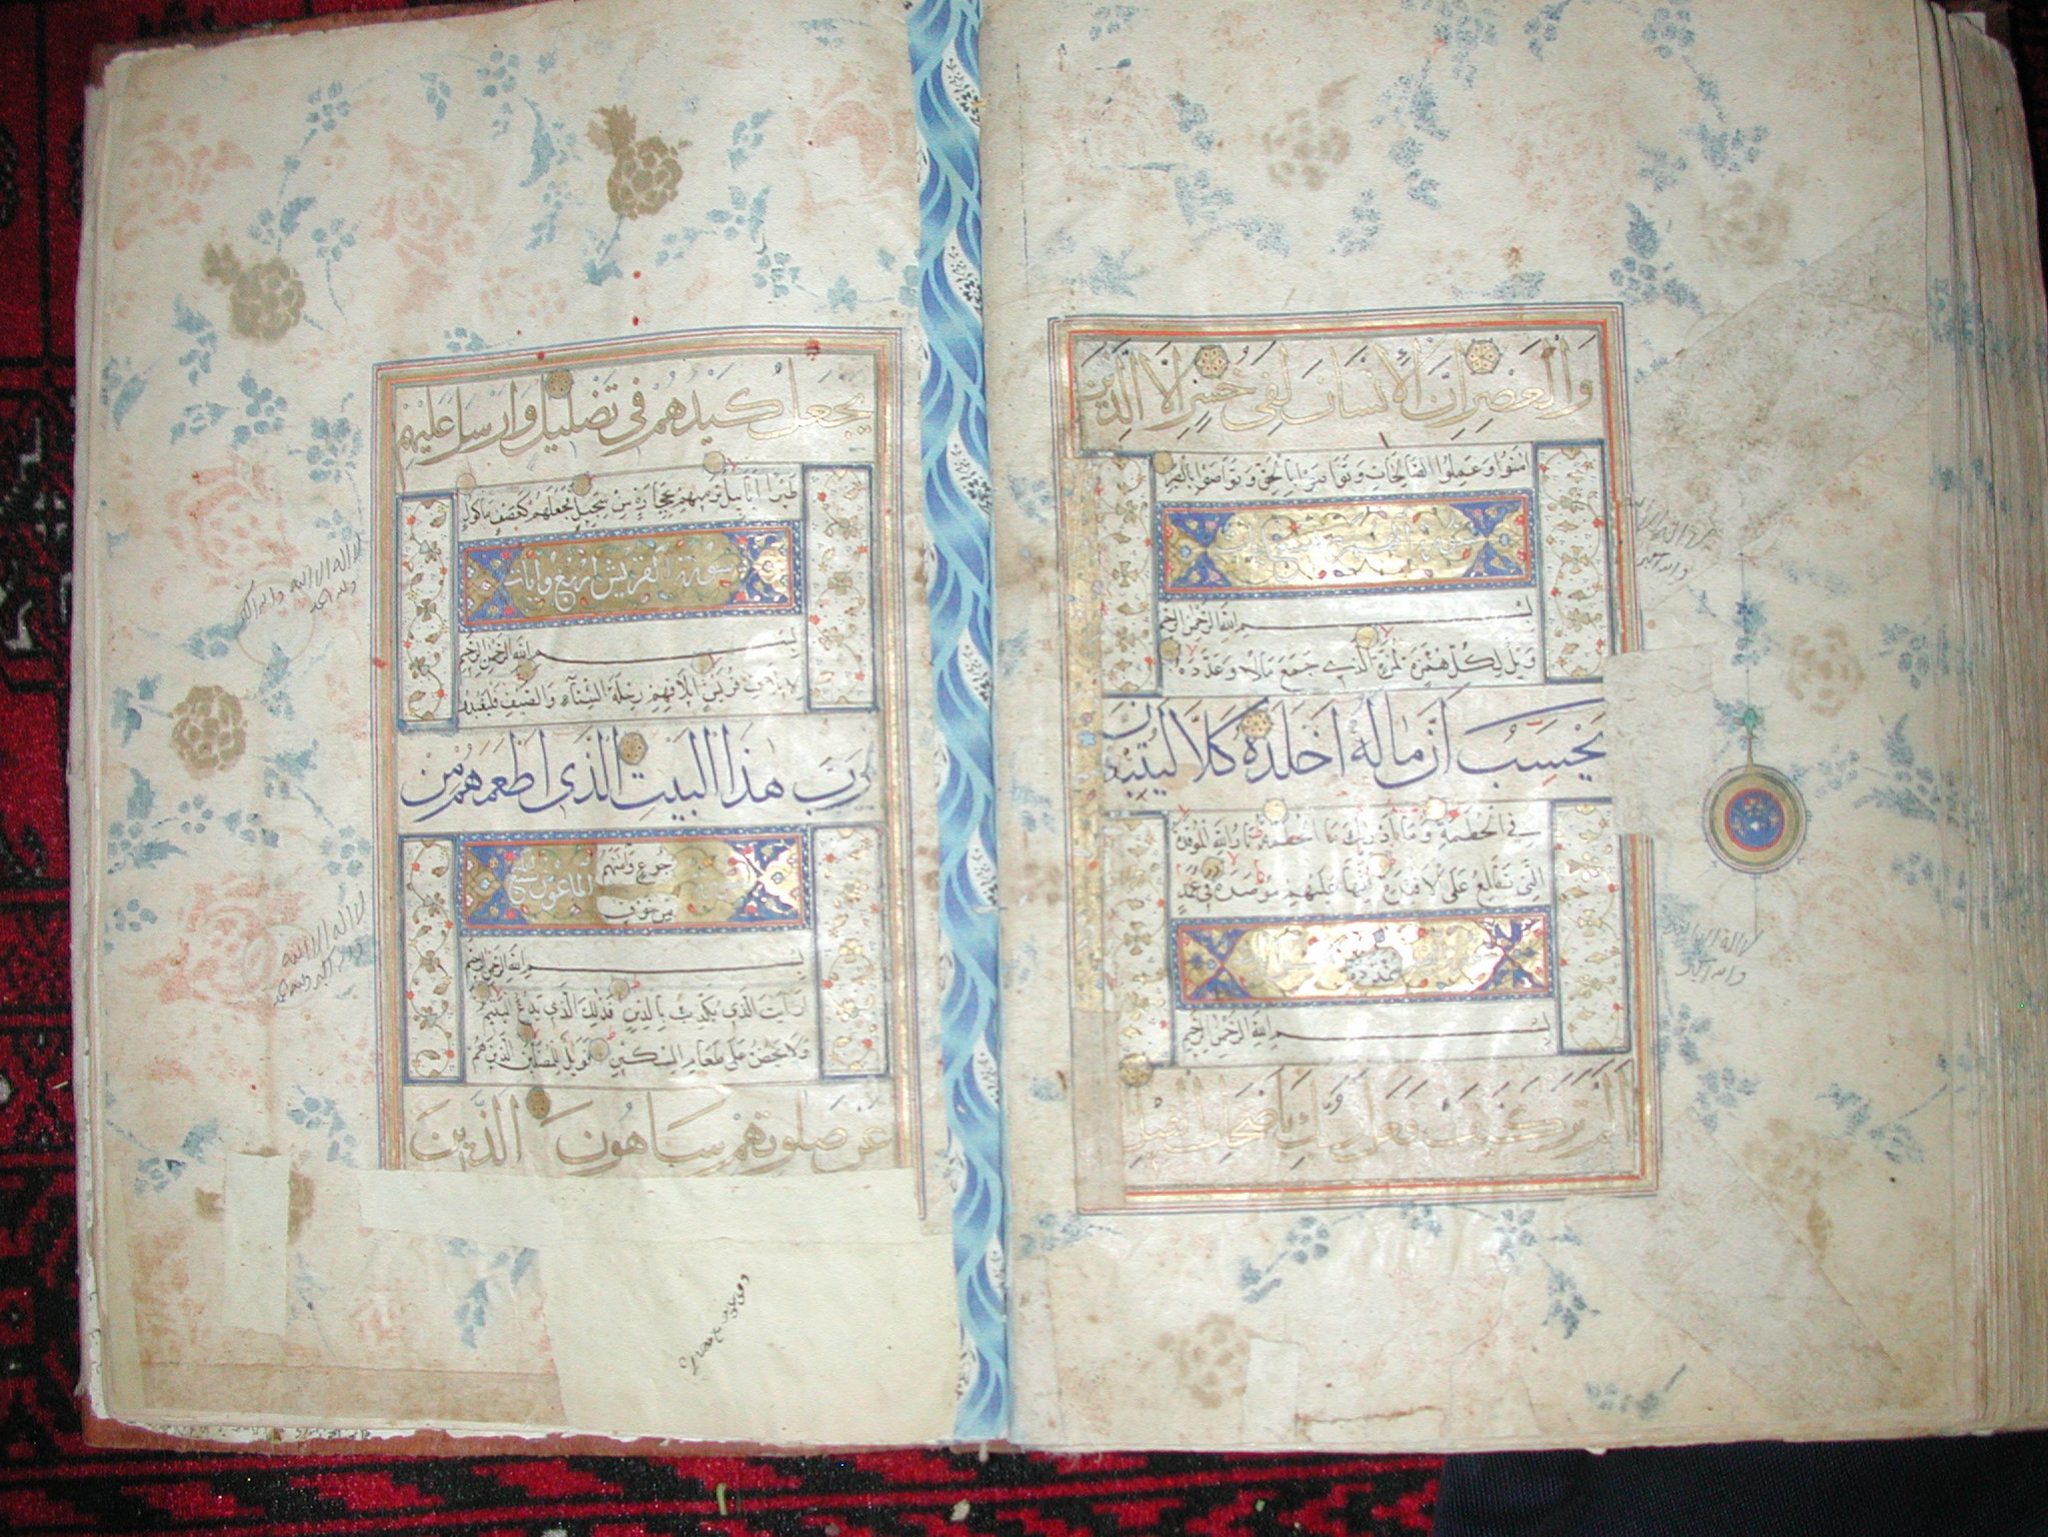 وَالْعَصْرِ اِنَّ الْاِنْسَانَ لَفِي خُسْرٍ اِلَّا الَّذِينَ
اٰمَنُوا وَعَمِلُوا الصَّالِحَاتِ وَتَوَاصَوْا بِالْحَقِّ وَتَوَاصَوْا بِالصَّبْرِ
بِسْمِ اللهِ الرَّحْمٰنِ الرَّحِيمِ
وَيْلٌ لِكُلِّ هُمَزَةٍ لُمَزَةٍ الَّذِي جَمَعَ مَالًا وَعَدَّدَهُ
يَحْسَبُ اَنَّ مَالَهُ اَخْلَدَهُ كَلَّا لَيُنْبَذَنَّ
فِي الْحُطَمَةِ وَمَا اَدْرٰيكَ مَا الْحُطَمَةُ نَارُ اللهِ الْمُوقَدَةُ
الَّتِي تَطَّلِعُ عَلَى الْاَفْئِدَةِ اِنَّهَا عَلَيْهِمْ مُؤْصَدَةٌ فِي عَمَدٍ
بِسْمِ اللهِ الرَّحْمٰنِ الرَّحِيمِ
اَلَمْ تَرَ كَيْفَ فَعَلَ رَبُّكَ بِاَصْحَابِ الْفِيلِ
لا اله الا الله
والله اكبر
يَجْعَلْ كَيْدَهُمْ فِي تَضْلِيلٍ وَاَرْسَلَ عَلَيْهِمْ
طَيْرًا اَبَابِيلَ تَرْمِيهِمْ بِحِجَارَةٍ مِنْ سِجِّيلٍ فَجَعَلَهُمْ كَعَصْفٍ مَأْكُولٍ
سورة القريش اربع وايات
بِسْمِ اللهِ الرَّحْمٰنِ الرَّحِيمِ
لِاِيلَافِ قُرَيْشٍ اِيلَافِهِمْ رِحْلَةَ الشِّتَاءِ وَالصَّيْفِ فَلْيَعْبُدُوا
رَبَّ هٰذَا الْبَيْتِ الَّذِي اَطْعَمَهُمْ مِنْ
جُوعٍ وَاٰمَنَهُمْ
الماعون
مِنْ خَوْفٍ
بِسْمِ اللهِ الرَّحْمٰنِ الرَّحِيمِ
اَرَاَيْتَ الَّذِي يُكَذِّبُ بِالدِّينِ فَذٰلِكَ الَّذِي يَدُعُّ الْيَتِيمَ
وَلَا يَحُضُّ عَلَى طَعَامِ الْمِسْكِينِ فَوَيْلٌ لِلْمُصَلِّينَ الَّذِينَ هُمْ
عَنْ صَلَوتِهِمْ سَاهُونَ الَّذِينَ
لا اله الا الله والله اكبر
ولله الحمد
لا اله الا الله
والله اكبر ولله الحمد